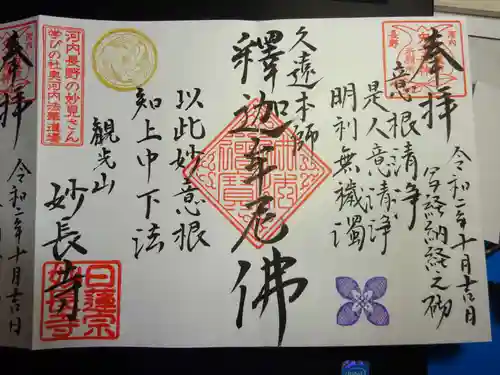 奉拝
令和二年十月吉日
写経納経之砌
意根清浄
是人意清浄
明利無穢濁
久遠本師
釋迦牟尼佛
以此妙意根
知上中下法
観光山
妙長寺
日蓮宗
妙長寺
河内長野の妙見さん
学びの杜奥河内法華道場
奉拝
令和二年十月吉日
河内
長野